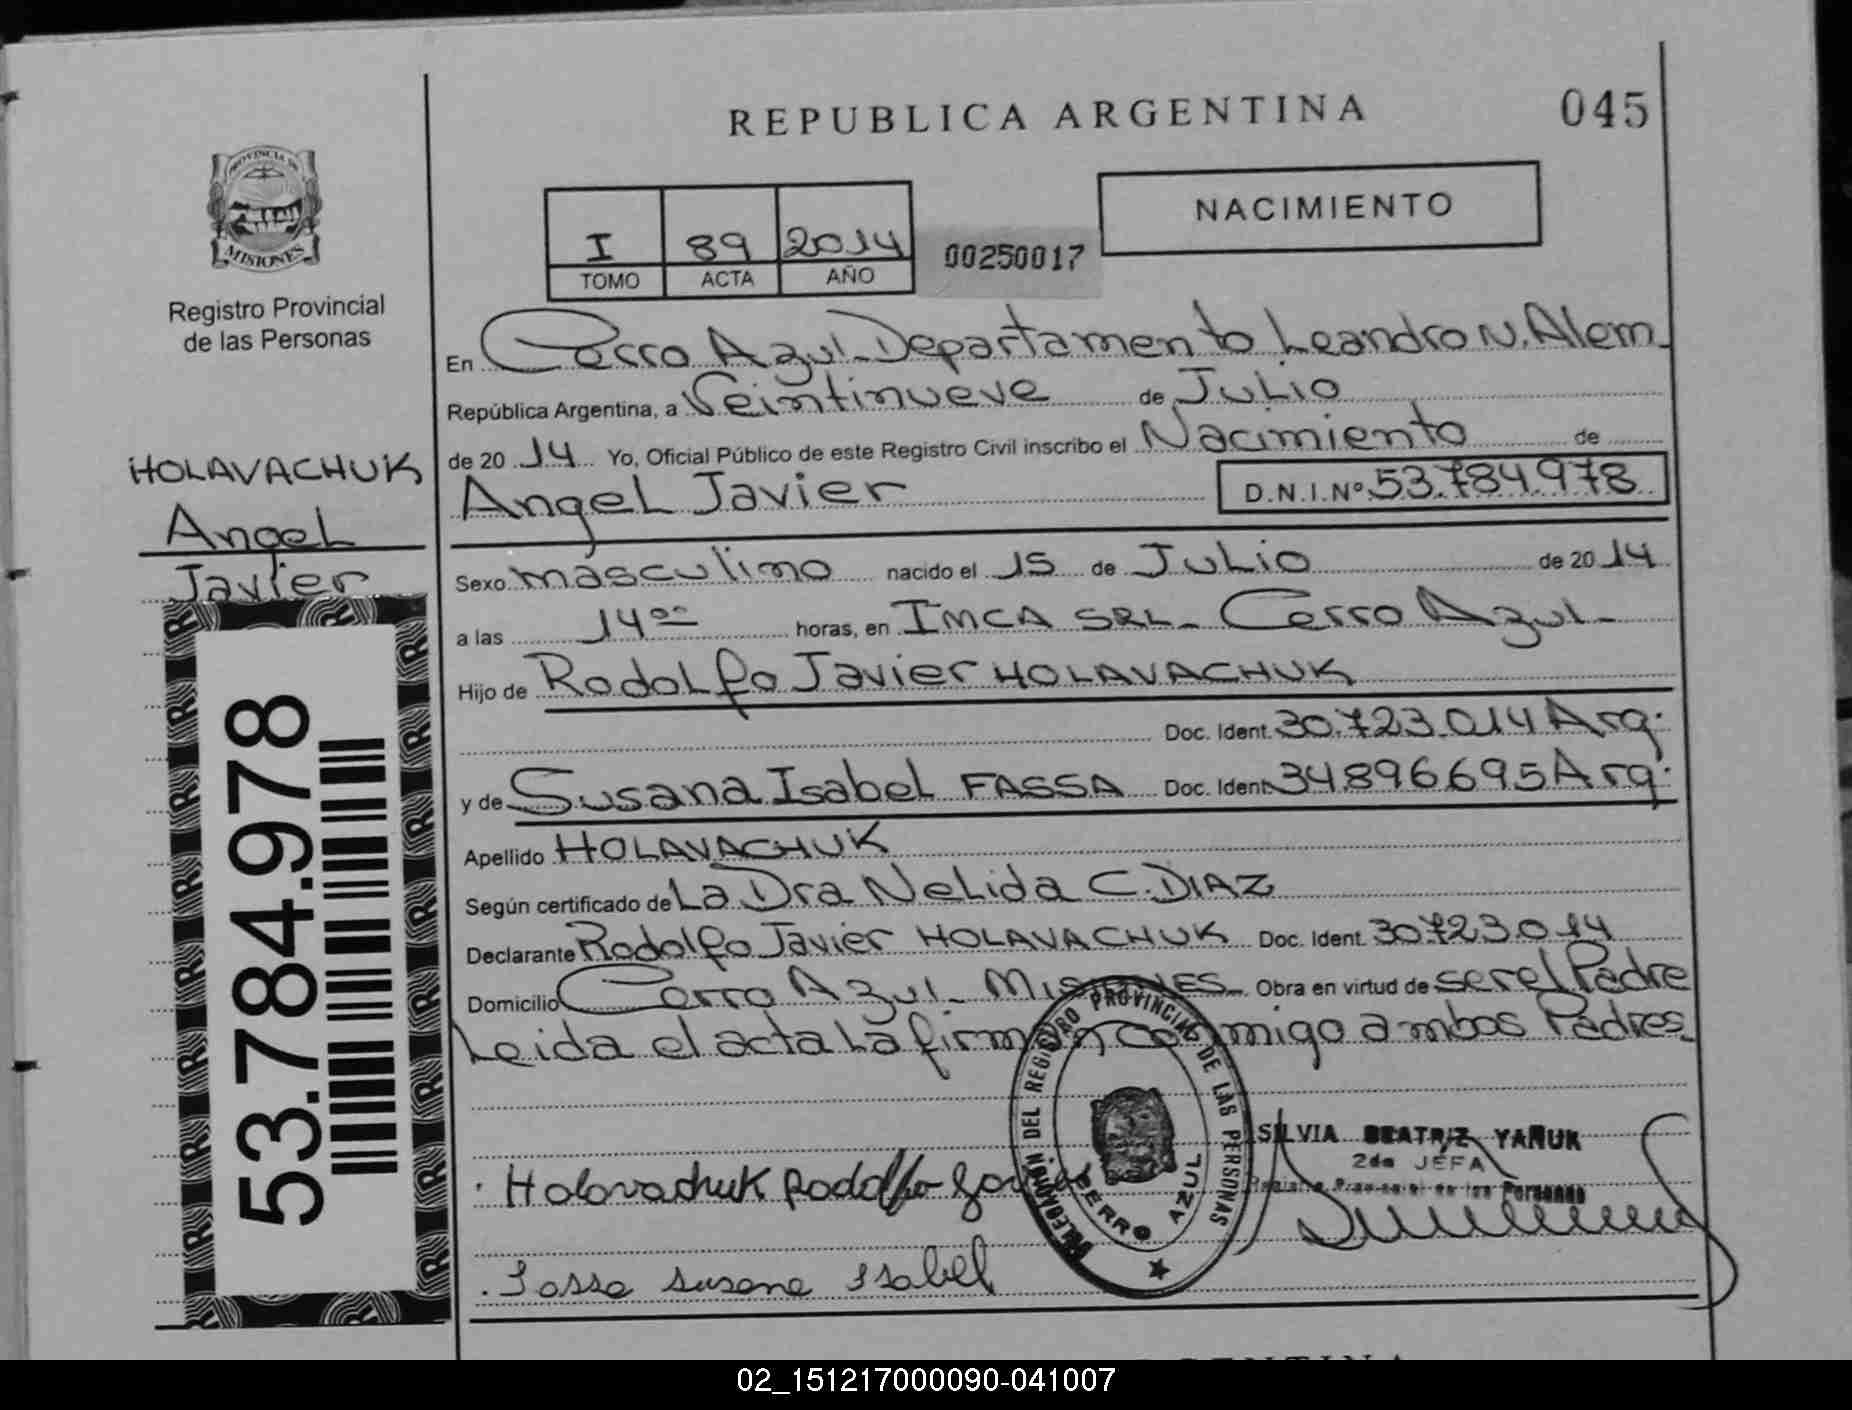 REPUBLICA ARGENTINA
045
PROVINCIA DE
MISIONES
Registro Provincial
de las Personas
I 89 2014
TOMO ACTA AÑO
00250017
NACIMIENTO
En Cerro Azul_Departamento Leandro N. Alem_
República Argentina, a Veintinueve de Julio
de 2014 Yo, Oficial Público de este Registro Civil inscribo el Nacimiento de
Angel Javier D.N.I.Nº 53.784.978
HOLAVACHUK
Angel
Javier
Sexo masculino nacido el 15 de Julio de 2014
a las 14°° horas, en IMCA SRL_ Cerro Azul_
Hijo de Rodolfo Javier HOLAVACHUK
Doc. Ident. 30.723.014 Arg.
y de Susana Isabel FASSA Doc. Ident. 34.896.695 Arg.
Apellido HOLAVACHUK
Según certificado de La Dra Nelida C. DIAZ
Declarante Rodolfo Javier HOLAVACHUK Doc. Ident. 30.723.014
Domicilio Cerro Azul_ Misiones_ Obra en virtud de ser el Padre
Leida el acta la firman conmigo ambos Padres_
53.784.978
DELEGACION DEL REGISTRO PROVINCIAL DE LAS PERSONAS
CERRO AZUL
SILVIA BEATRIZ YAÑUK
2da JEFA
Registro Provincial de las Personas
Holovachuk Rodolfo
Fassa Susana Isabel
02_151217000090-041007